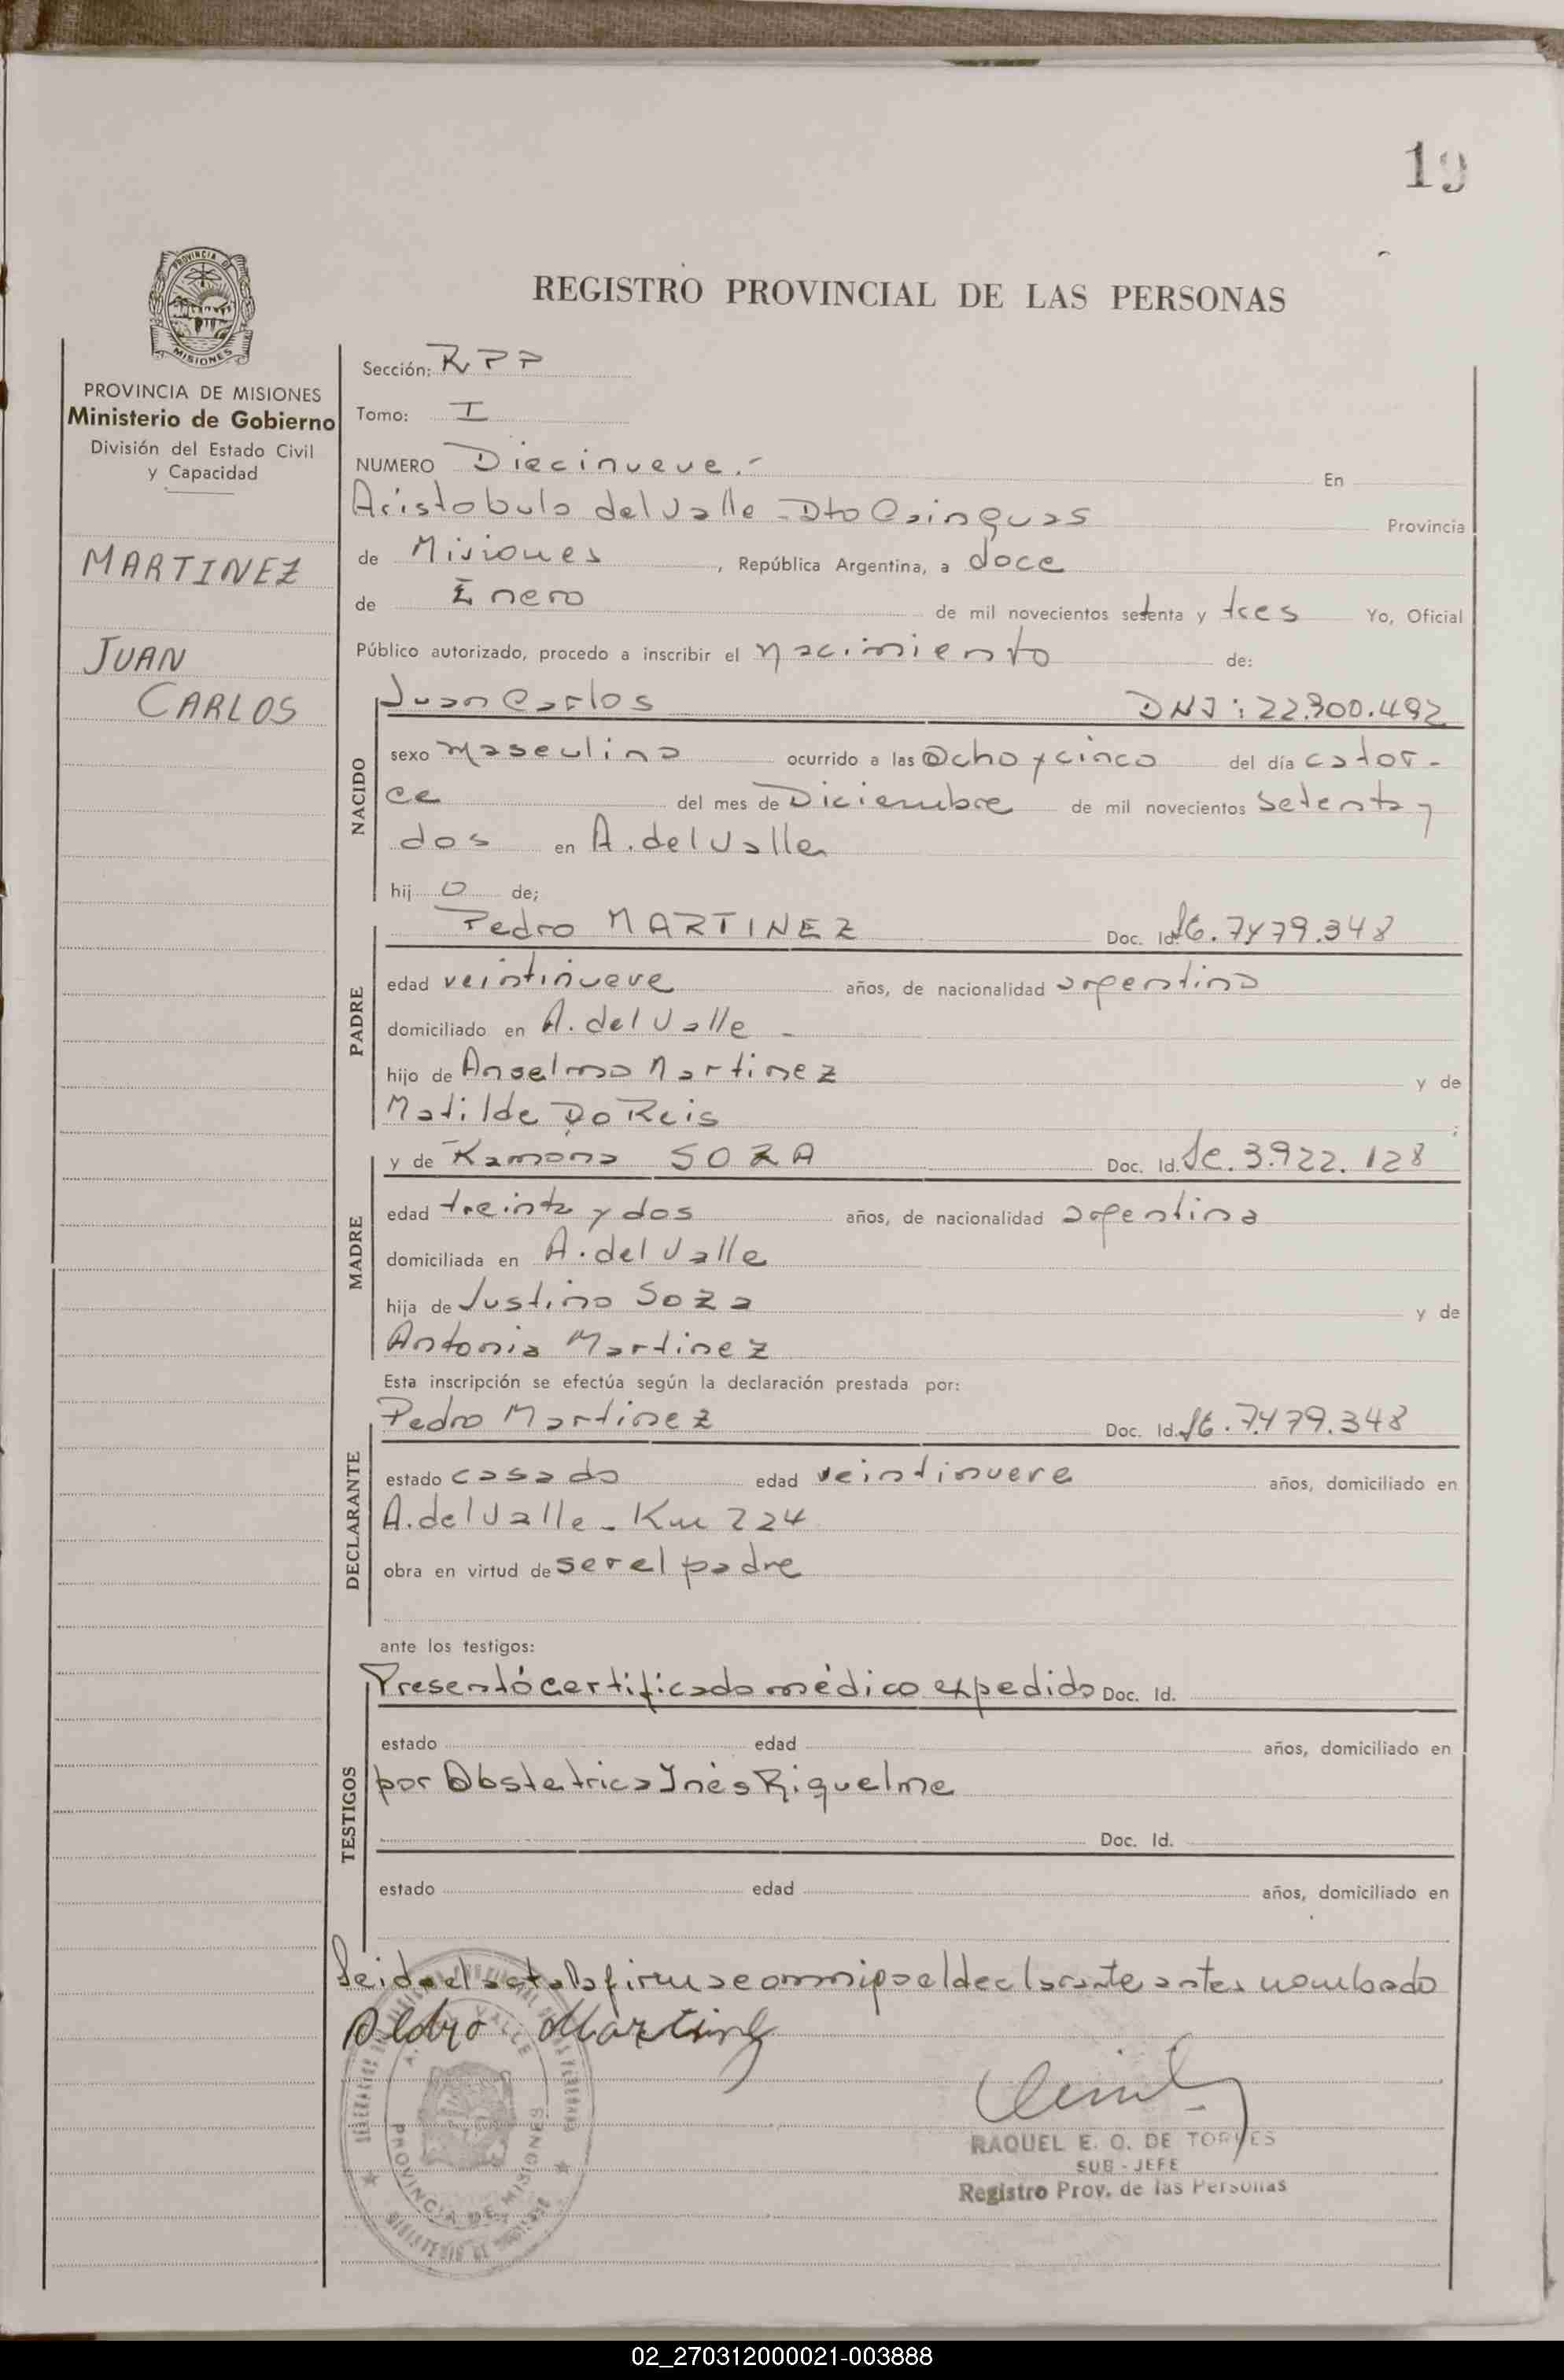 19
REGISTRO PROVINCIAL DE LAS PERSONAS
PROVINCIA DE MISIONES
PROVINCIA DE MISIONES
Ministerio de Gobierno
División del Estado Civil
y Capacidad
MARTINEZ
JUAN
CARLOS
Sección: RPP
Tomo: I
NUMERO Diecinueve.- En
Aristobulo del Valle - Dto Cainguas Provincia
de Misiones, República Argentina, a doce
de Enero de mil novecientos setenta y tres Yo, Oficial
Público autorizado, procedo a inscribir el nacimiento de:
NACIDO
Juan Carlos DNI: 22.900.492
sexo masculino ocurrido a las ocho y cinco del día cator-
ce del mes de Diciembre de mil novecientos setenta y
dos en A. del Valle
hij o de;
PADRE
Pedro MARTINEZ Doc. Id. 7479.348
edad veintinueve años, de nacionalidad argentina
domiciliado en A. del Valle -
hijo de Anselmo Martinez y de
Matilde Do Reis
MADRE
y de Ramona SOZA Doc. Id. 3.922.128
edad treinta y dos años, de nacionalidad argentina
domiciliada en A. del Valle
hija de Justino Soza y de
Antonia Martinez
Esta inscripción se efectúa según la declaración prestada por:
DECLARANTE
Pedro Martinez Doc. Id. 7.479.348
estado casado edad veintinueve años, domiciliado en
A. del Valle - Km 224
obra en virtud de ser el padre
ante los testigos:
TESTIGOS
Presentó certificado médico expedido Doc. Id.
estado edad años, domiciliado en
por Obstetrica Inés Riquelme
Doc. Id.
estado edad años, domiciliado en
Leida el acta la firma conmigo el declarante antes nombado
Pedro Martinez
A. VALLE
PROVINCIA DE MISIONES
RAQUEL E. O. DE TORRES
SUB - JEFE
Registro Prov. de las Personas
02_270312000021-003888